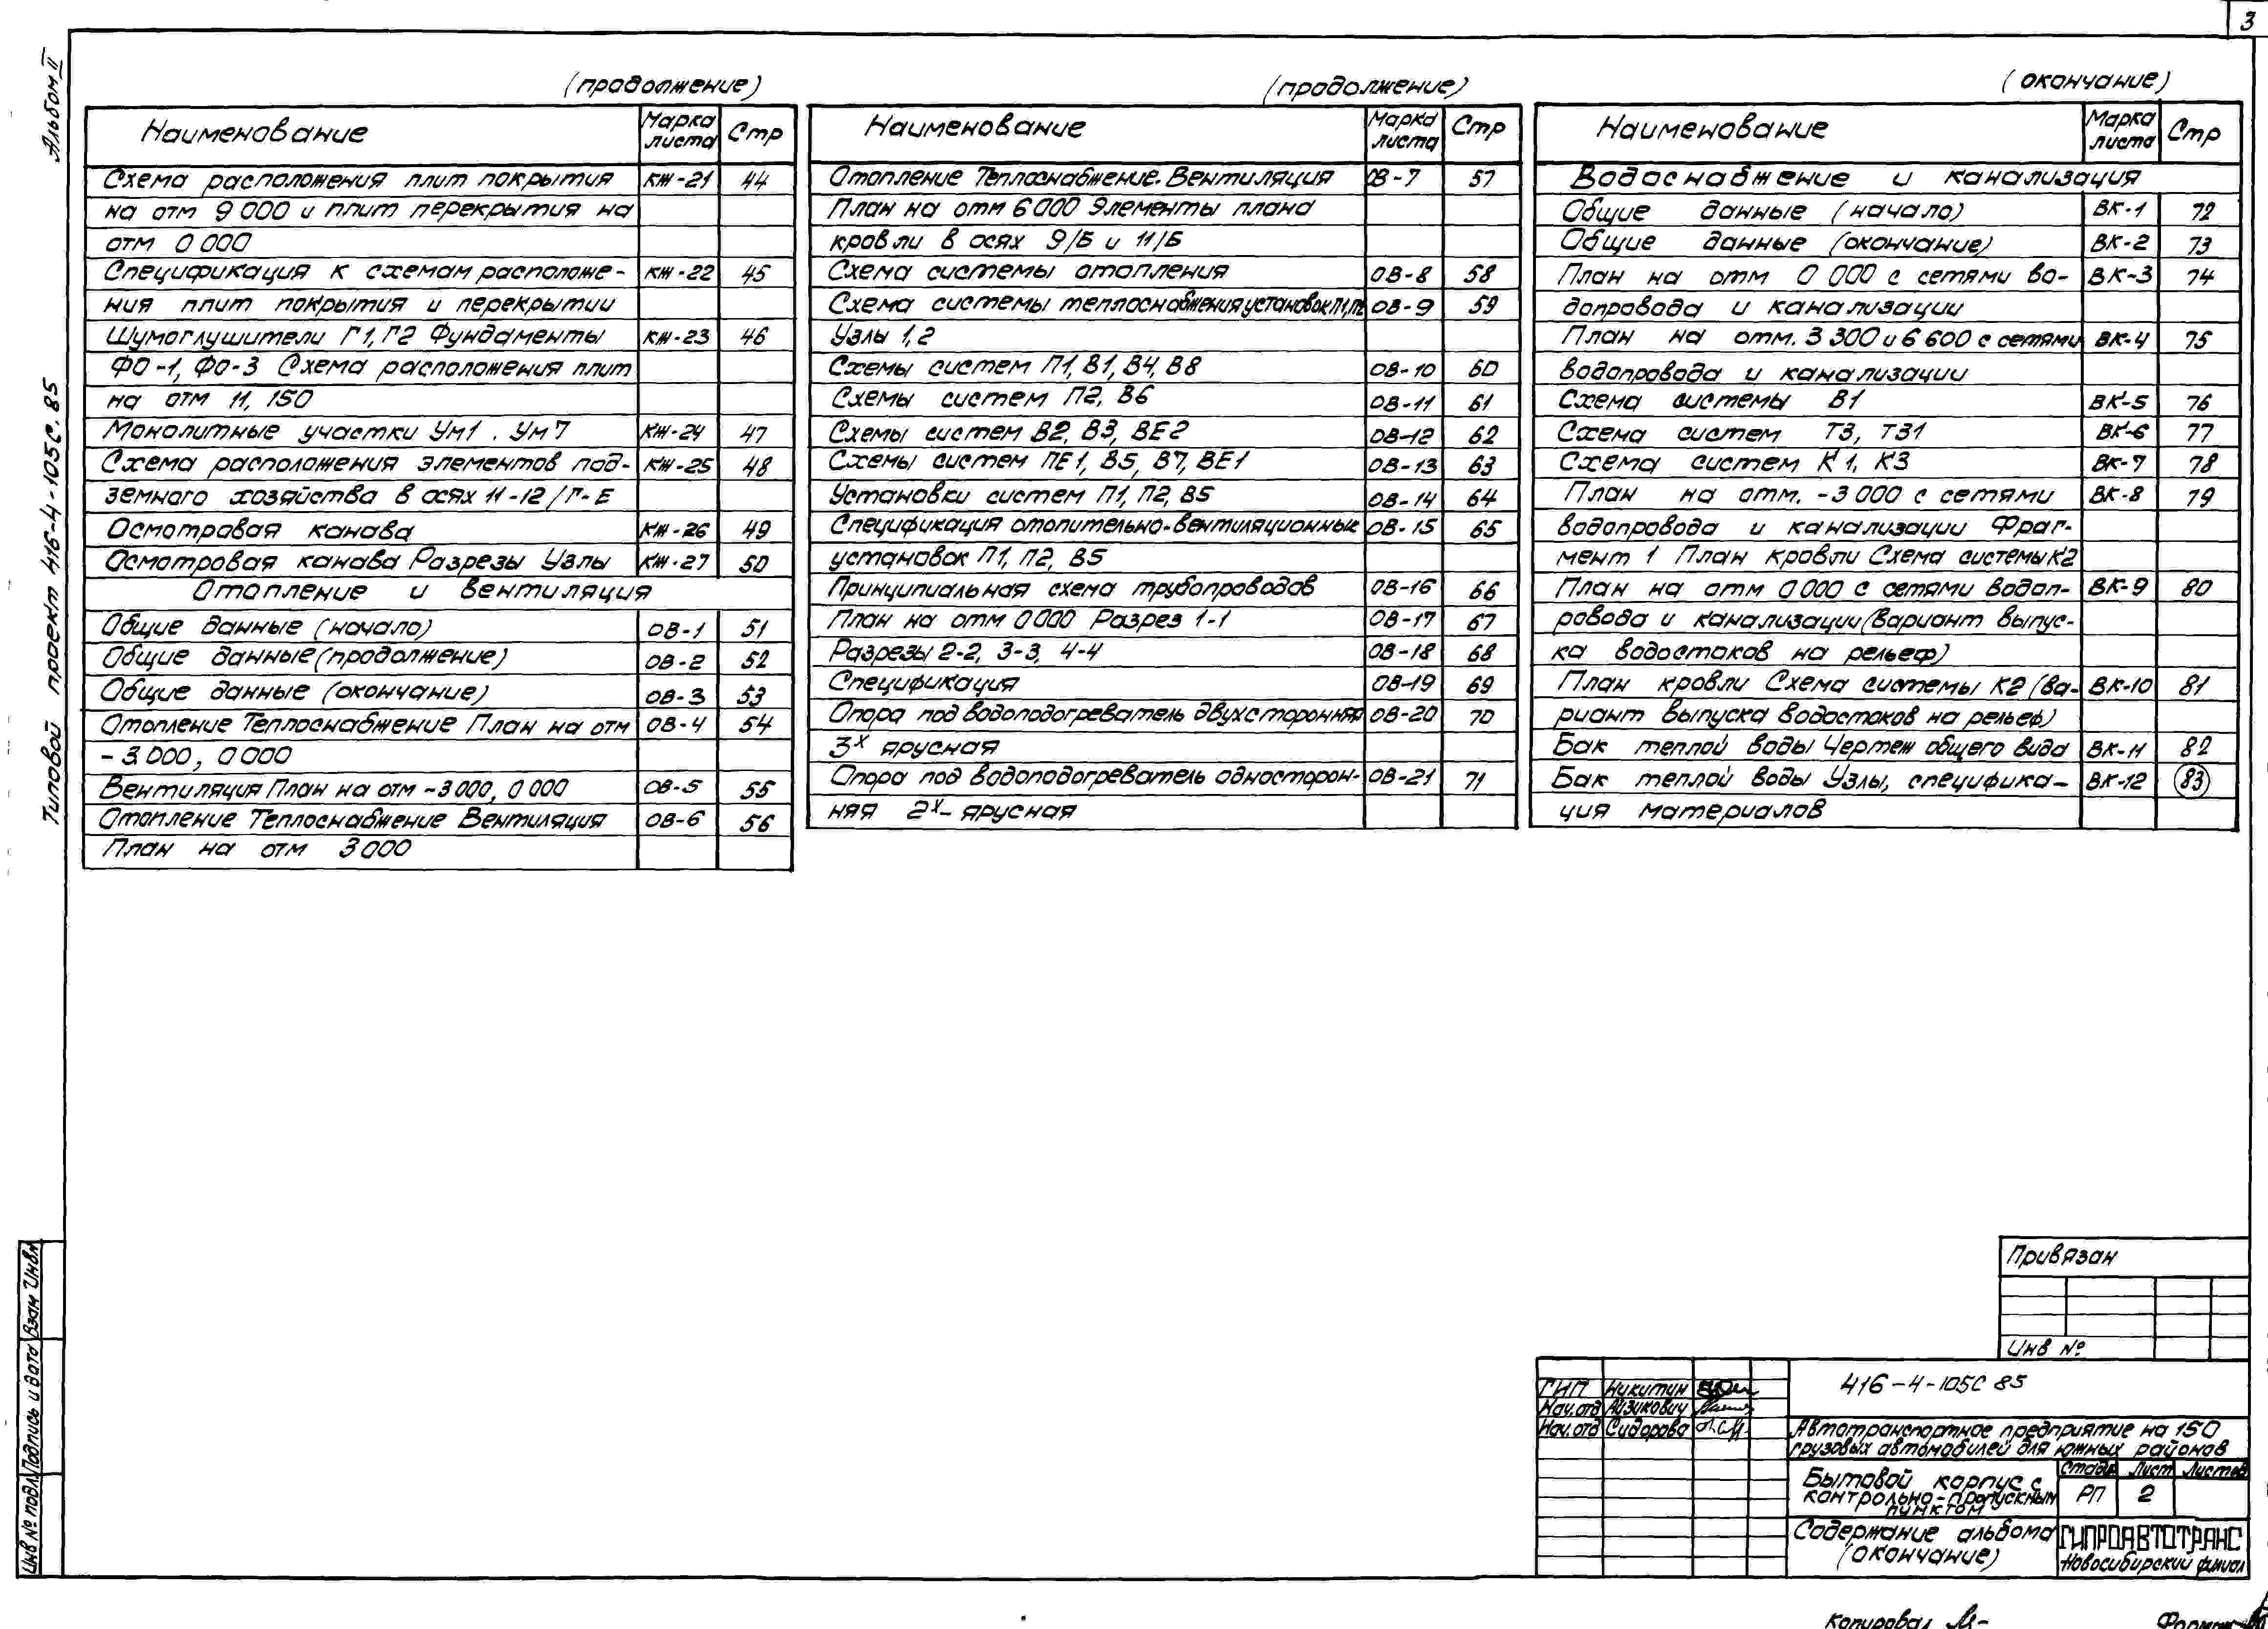 3
Альбом II
Типовой проект 416-4-105С.85
(продолжение)
Наименование Марка листа Стр
Схема расположения плит покрытия КЖ-21 44
на отм 9 000 и плит перекрытия на
отм 0 000
Спецификация к схемам расположе- КЖ-22 45
ния плит покрытия и перекрытии
Шумоглушители Г1, Г2 Фундаменты КЖ-23 46
ФО-1, ФО-3 Схема расположения плит
на отм 11, 150
Монолитные участки Ум1 . Ум7 КЖ-24 47
Схема расположения элементов под- КЖ-25 48
земного хозяйства в осях 11-12/Г-Е
Осмотровая канава КЖ-26 49
Осмотровая канава Разрезы Узлы КЖ-27 50
Отопление и вентиляция
Общие данные (начало) ОВ-1 51
Общие данные (продолжение) ОВ-2 52
Общие данные (окончание) ОВ-3 53
Отопление Теплоснабжение План на отм ОВ-4 54
-3.000, 0 000
Вентиляция План на отм -3 000, 0 000 ОВ-5 55
Отопление Теплоснабжение Вентиляция ОВ-6 56
План на отм 3 000
(продолжение)
Наименование Марка листа Стр
Отопление Теплоснабжение. Вентиляция ОВ-7 57
План на отм 6 000 Элементы плана
кровли в осях 9/Б и 11/Б
Схема системы отопления ОВ-8 58
Схема системы теплоснабжения установок П1, П2 ОВ-9 59
Узлы 1,2
Схемы систем П1, В1, В4, В8 ОВ-10 60
Схемы систем П2, В6 ОВ-11 61
Схемы систем В2, В3, ВЕ2 ОВ-12 62
Схемы систем ПЕ1, В5, В7, ВЕ1 ОВ-13 63
Установки систем П1, П2, В5 ОВ-14 64
Спецификация отопительно-вентиляционных ОВ-15 65
установок П1, П2, В5
Принципиальная схема трубопроводов ОВ-16 66
План на отм 0 000 Разрез 1-1 ОВ-17 67
Разрезы 2-2, 3-3, 4-4 ОВ-18 68
Спецификация ОВ-19 69
Опора под водоподогреватель двухсторонняя ОВ-20 70
3х ярусная
Опора под водоподогреватель односторон- ОВ-21 71
няя 2х- ярусная
(окончание)
Наименование Марка листа Стр
Водоснабжение и канализация
Общие данные (начало) ВК-1 72
Общие данные (окончание) ВК-2 73
План на отм 0 000 с сетями во- ВК-3 74
допровода и канализации
План на отм. 3 300 и 6 600 с сетями ВК-4 75
водопровода и канализации
Схема системы В1 ВК-5 76
Схема систем Т3, Т31 ВК-6 77
Схема систем К1, К3 ВК-7 78
План на отм. -3 000 с сетями ВК-8 79
водопровода и канализации Фраг-
мент 1 План кровли Схема системы К2
План на отм 0 000 с сетями водоп- ВК-9 80
ровода и канализации (Вариант выпус-
ка водостоков на рельеф)
План кровли Схема системы К2 (ва- ВК-10 81
риант выпуска водостоков на рельеф)
Бак теплой воды Чертеж общего вида ВК-11 82
Бак теплой воды Узлы, специфика- ВК-12 83
ция материалов
Привязан
Инв №
ГИП Никитин
Нач.отд Айзикович
Нач.отд Сидорова
416-4-105С 85
Автотранспортное предприятие на 150
грузовых автомобилей для южных районов
Бытовой корпус с
контрольно-пропускным
пунктом
Стадия Лист Листов
РП 2
Содержание альбома
(окончание)
ГИПРОАВТОТРАНС
Новосибирский филиал
Инв № подл Подпись и дата Взам Инв №
Копировал
Формат